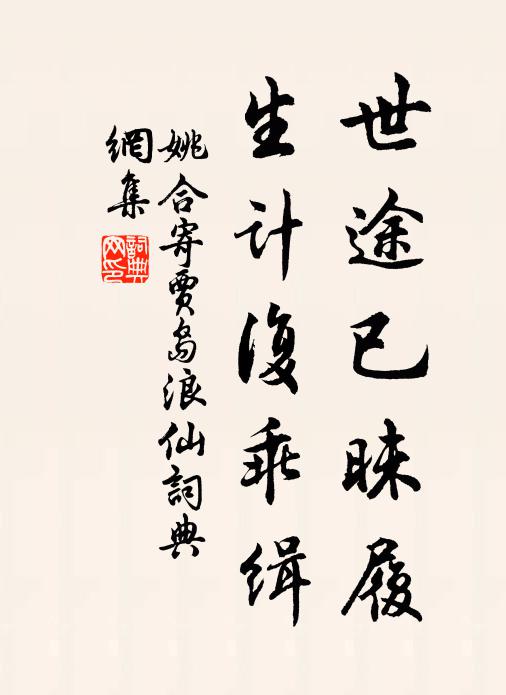 世途已昧履
生计復乖缉
姚合寄贾岛浪仙詞典
網集
詞典
网印